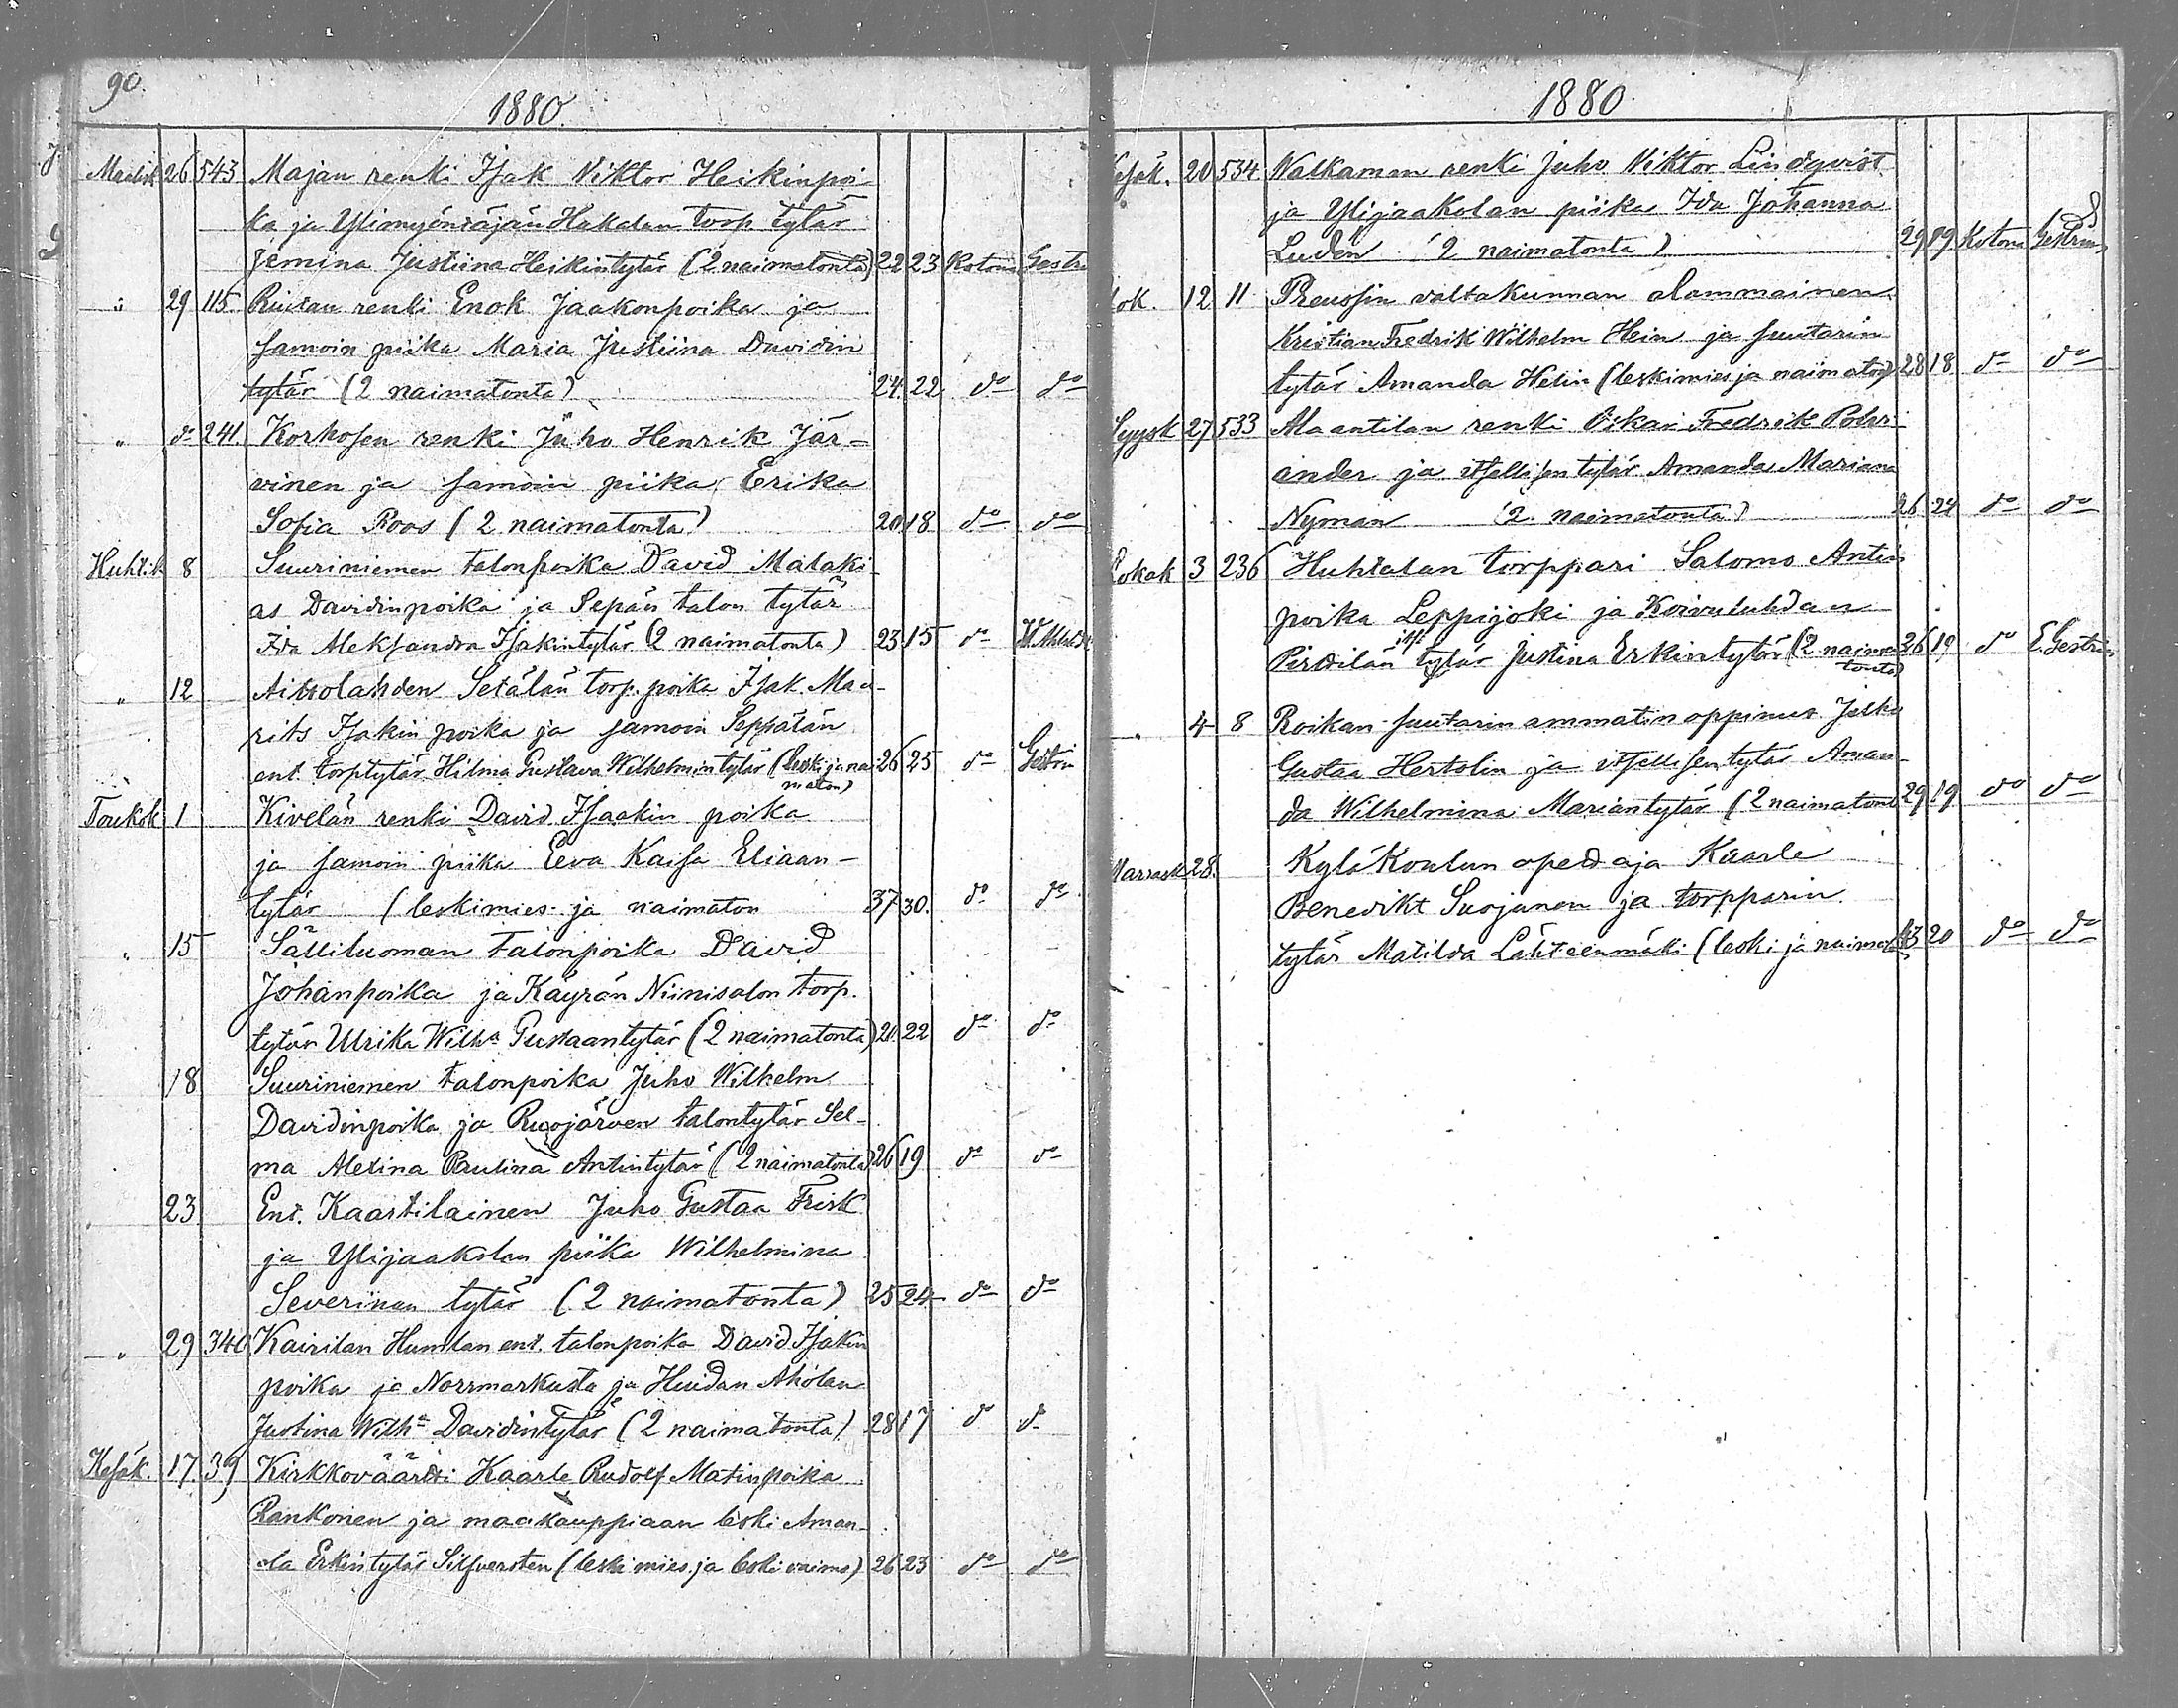 90.
1880.
Maalisk 26 543 Majan renki Isak Viktor Heikinpoi-
ka ja Ylimyöntäjän Hakalan torp. tytär
Jemina Justiina Heikintytär (2 naimatonta) 22 23 Kotona Gestri
" 29 115. renki Enok Jaakonpoika ja
samoin piika Maria Justiina Davidin
tytär (2 naimatonta) 24. 22 do do
" do 241. Korhosen renki Juho Henrik Jär-
vinen ja samoin piika Erika
Sofia Roos (2 naimatonta) 20 18 do do
Huhtik 8 Suuriniemen talonpoika David Malaki-
as Davidinpoika ja Sepän talon tytär
Ida Aleksandra Isakintytär (2 naimatonta) 23 15 do
" 12 Aitsolahden Setälän torp. poika Isak Mau-
rits Isakin poika ja samoin Seppälän
ent. torp tytär Hilma Gustava Wilhelmintytär (leski ja nai 26 25 do Gestrin
maton)
Toukok 1 Kivelän renki David Isaakin poika
ja samoin piika Eeva Kaisa Eliaan-
tytär (leskimies ja naimaton 37 30. do do
" 15 Sälliluoman talonpoika David
Johanpoika ja Käyrän Niinisalon torp.
tytär Ulrika Wilha Gustaantytär (2 naimatonta) 20. 22 do do
18 Suuriniemen talonpoika Juho Wilhelm
Davidinpoika ja Ruojärven talontytär Sel-
ma Alexina Paulina Antintytär (2 naimatonta) 26 19 do do
23 Ent. Kaartilainen Juho Gustaa Frisk
ja Ylijaakolan piika Wilhelmina
Severinan tytär (2 naimatonta) 25 24 do do
" 29 340 Kairilan Humlan ent. talonpoika David Isakin
poika ja Norrmarkusta ja Huidan Aholan
Justina Wilha Davidintytär (2 naimatonta) 28 17 do do
Kesäk. 17 39 Kirkkoväärti Kaarle Rudolf Matinpoika
Rankonen ja maakauppiaan leski Aman-
da Erkintytär Silfversten (leski mies ja leski vaimo) 26 23 do do
1880.
Kesäk. 20 534 Walkaman renki Juho Viktor Lindqvist
ja Ylijaakolan piika Ida Johanna
Luden (2 naimatonta) 29 19 Kotona Gestrin
lok. 12 11 Preussin valtakunnan alammainen
Kristian Fredrik Wilhelm Hein ja suutarin
tytär Amanda Helin (leskimies ja naimaton) 28 18 do do
Syysk 27 533 Alaantilan renki Oskar Fredrik
ander ja itsellisen tytär Amanda Mariana
Nyman (2 naimatonta) 26 24 do do
Lokak 3 236 Huhtalan torppari Salomo Antin
poika Leppijoki ja Koivuluhdan
Pirttilän its. tytär Justina Erkintytär (2 naima 26 19 do E. Gestrin
tonta)
" 4 8 Roikan suutarin ammatin oppinut Juho
Gustaa Hertolin ja itsellisen tytär Aman-
da Wilhelmina Mariantytär (2 naimatont 29 19 do do
Marrask 28. Kyläkoulun opettaja Kaarle
Benedikt Suojanen ja torpparin
tytär Matilda Lähteenmäki (leski ja naimaton 43 20 do do